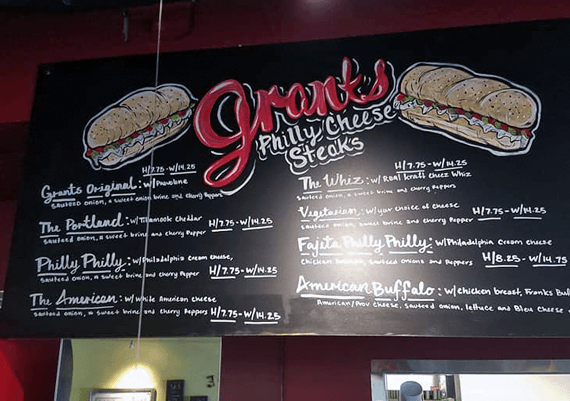 Grants
Philly Cheese
Steaks
H/7.75-W/14.25
Grants Original: w/Provolone
sauteed onion, a sweet brine and cherry Peppers
The Portland: w/Tillamook cheddar
sauteed onion, a sweet brine and cherry Pepper
H/7.75-W/14.25
Philly Philly: w/Philadelphia Cream cheese,
sauteed onion, a sweet brine and cherry Pepper
H/7.75-W/14.25
The American: w/white American cheese
sauteed onion, a sweet brine and cherry Peppers H/7.75-W/14.25
H/7.75-W/14.25
The Whiz: w/Real Kraft cheez Whiz
sauteed onion, a sweet brine and cherry peppers
Vegetarian: w/your choice of cheese H/7.75-W/14.25
sauteed onion, sweet brine and cherry Pepper
Fajita Philly Philly: w/Philadelphia Cream cheese
Chicken sauteed onions and Peppers H/8.25-W/14.75
American Buffalo: w/chicken breast, Franks
American/Prov cheese, sauteed onion, lettuce and Bleu Cheese